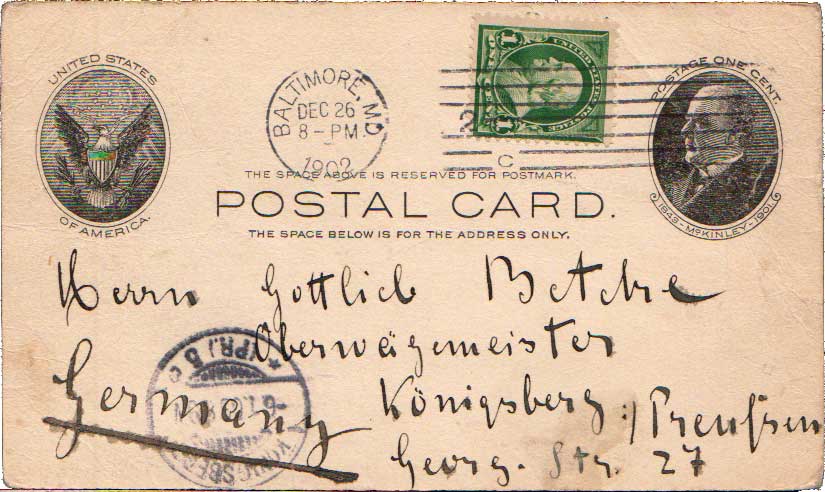 UNITED STATES
OF AMERICA.
BALTIMORE, MD
DEC 26
8-PM
1902
C
1
UNITED STATES POSTAGE
1
POSTAGE ONE CENT.
1843-McKINLEY-1901
THE SPACE ABOVE IS RESERVED FOR POSTMARK.
POSTAL CARD.
THE SPACE BELOW IS FOR THE ADDRESS ONLY.
Herrn Gottlieb
Oberwägemeister
Germany Königsberg i/ Preußen
Georg. Str. 27
KÖNIGSBERG
(PR.) 5